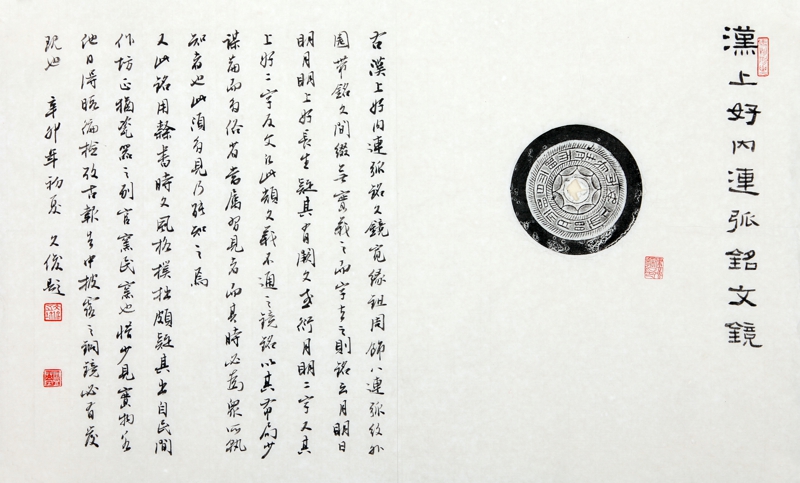 漢上好內連弧銘文鏡
右漢上好內連弧銘文鏡寬緣鈕周飾八連弧紋外
圈帶銘文間綴無實義之而字去之則銘云月明日
明月明上好長生疑其有闕文或衍月明二字又其
上好二字反文江此類文義不通之鏡銘以其布局少
謀篇而為俗省當屬習見者而其時必為眾所孰
知者也此須多見乃能知之焉
又此銘用隸書時久風格樸拙頗疑其出自民間
作坊正猶瓷器之別官窯民窯也惜少見實物若
他日得暇編檢攷古報告中披露之銅鏡必有發
現也 辛卯年初夏 文俊題